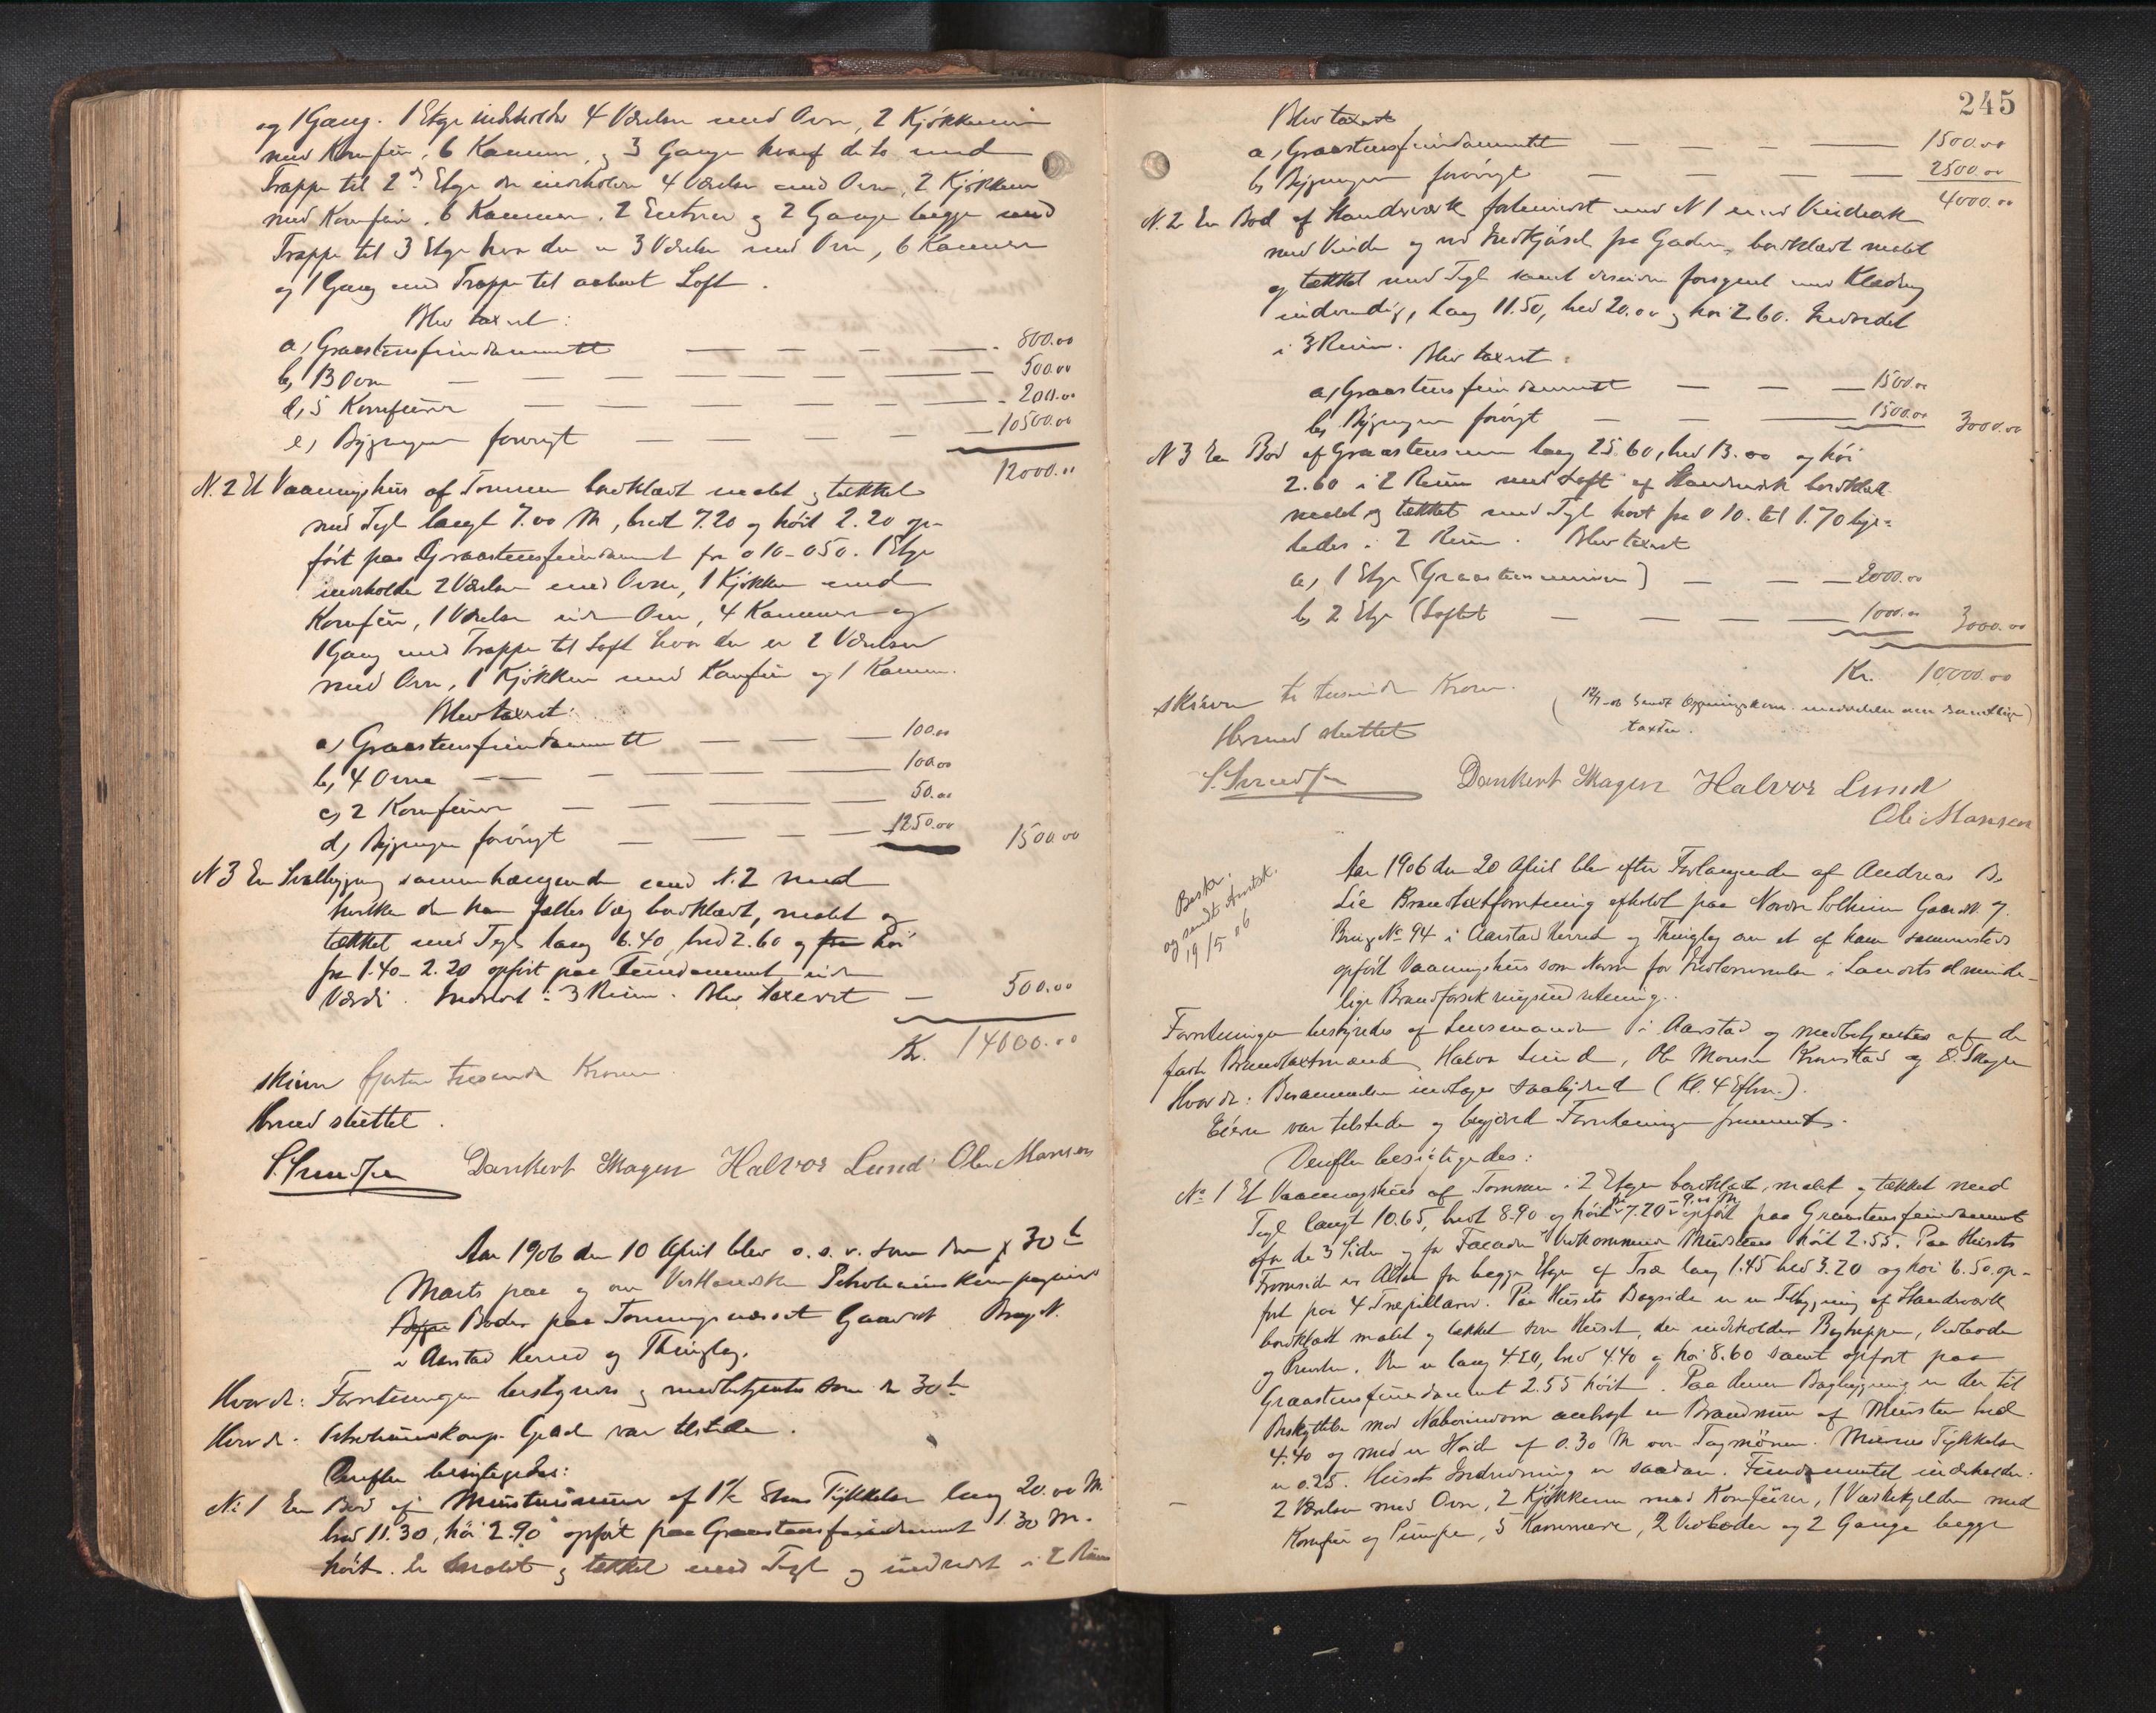 og 1 Gang. 1 Etge indeholder 4 Værelser med Ovn, 2 Kjøkkener
med Komfur, 6 Kammer, og 3 Gange hvoraf de to med
Trappe til 2den Etge der indeholder 4 Værelser med Ovn, 2 Kjøkken
med Komfur, 6 Kammer, 2 Entreer og 2 Gange begge med
Trappe til 3 Etge hvor der er 3 Værelser med Ovn, 6 Kammer
og 1 Gang med Trappe til aabent Loft.
Blev taxeret:
a, Graastensfundamentet — — — — 800.00
b, 13 Ovne — — — — — — 500.00
d, 5 Komfurer — — — — — 200.00
e, Bygningen forøvrigt — — — — 10500.00
12000.00
N. 2 Et Vaaningshus af Tømmer bordklædt malet og tækket
med Tegl langt 7.00 M, bredt 7.20 og høit 2.20 op-
ført paa Graastensfundament fra 0.10 - 0.50. 1 Etge
indeholder 2 Værelser med Ovne, 1 Kjøkken med
Komfur, 1 Værelse uden Ovn, 4 Kammer og
1 Gang med Trappe til Loft hvor der er 2 Værelser
med Ovn, 1 Kjøkken med Komfur og 1 Kammer.
Blev taxeret:
a, Graastensfundamentet — — — 100.00
b, 4 Ovne — — — — 100.00
c, 2 Komfurer — — — — 50.00
d, Bygningen forøvrigt — — — 1250.00 1500.00
N 3 En Svalbygning sammenhængende med N. 2 med
hvilken den har fælles Væg bordklædt, malet og
tækket med Tegl lang 6.40, bred 2.60 og høi
fra 1.40 - 2.20 opført paa Fundament uden
Værdi. Indredet i 3 Rum. Blev taxeret — 500.00
Kr. 14000.00
skriver fjorten tusende Kroner.
Hermed sluttet.
Dankert Skagen Halvor Lund Ole Monsen
Aar 1906 den 10 April blev o. s. v. som den 30te
Marts paa og over Vestlandske Petroleumskompagnis
Boder paa Gaards N. Brugs N.
i Aarstad Herred og Thinglag.
Hvor da: Forretningen bestyres og medbetjentes som den 30te
Hvor da: Petroleumskomp. var tilstede.
Derefter besigtigedes:
No 1 En Bod af Murstensmur af 1½ Stens Tykkelse lang 20.00 M.
bred 11.30, høi 2.90 opført paa Graastensfundament 1.30 M.
høit. Er malet og tækket med Tegl og indredet i 2 Rum
245
Blev taxeret
a, Graastensfundamentet — — — — 1500.00
b, Bygningen forøvrigt — — — — 2500.00
4000.00
N. 2 En Bod af Standværk forbundet med N 1
med Vinde og ved Indkjørsel fra Gaden, bordklædt malet
og tækket med Tegl samt desuden forsynet med Klædning
indvendig, lang 11.50, bred 20.00 og høi 2.60. Indredet
i 3 Rum.
Blev taxeret:
a, Graastensfundamentet — — — 1500.00
b, Bygningen forøvrigt — — — 1500.00 3000.00
N 3 En Bod af Graastensmur lang 25.60, bred 13.00 og høi
2.60 i 2 Rum med Loft af Standværk bordklædt
malet og tækket med Tegl høit fra 0.10 til 1.70 lige-
ledes i 2 Rum. Blev taxeret
a, 1 Etge (Graastensmuren) — — — 2000.00
b, 2 Etge (Loftet — — — 1000.00 3000.00
Kr. 10,000.00
skriver ti tusinde Kroner.
Hermed sluttet
Dankert Skagen Halvor Lund
Ole Monsen
Beskr.
og sendt Amtsk.
19/5 06
Aar 1906 den 20 April blev efter Forlangende af Andreas B.
Lie Brandtaxtforretning afholdt paa Nordre Solheim Gaards N. 7
Brugs No 94 i Aarstad Herred og Thinglag over et af ham sammesteds
opført Vaaningshus som Norm for Indlemmelse i Landets alminde-
lige Brandforsikringsindretning.
Forretningen bestyredes af Lensmanden i Aarstad og medbetjentes af de
faste Brandtaxtmænd Halvor Lund, Ole Monsen Kronstad og D. Skagen
Hvor da: Berammelsen indtages saalydende (Kl. 4 Efterm.).
Eieren var tilstede og begjærede Forretningen fremmet.
Derefter besigtigedes:
No 1 Et Vaaningshus af Tømmer i 2 Etger bordklædt, malet og tækket med
Tegl langt 10.65, bredt 8.90 og høit fra 7.20 - 9.00 M opført paa Graastensfundament
for de 3 Sider og for Facaden vedkommende Mursten høit 2.55. Paa Husets
Fremside er Altan for begge Etger af Træ lang 1.45 bred 3.20 og høi 6.50 op-
ført paa 4 Træpillarer. Paa Husets Bagside er en Tilbygning af Standværk
bordklædt malet og tækket som Huset, der indeholder Bagtrappen, Vedboder
og Priveter. Den er lang 4.20, bred 4.40 og høi 8.60 samt opført paa
Graastensfundament 2.55 høit. Paa denne Bagbygning er der til
Beskyttelse mod Naboeiendom anbragt en Brandmur af Mursten bred
4.40 og med en Høide af 0.30 M over Tagmønen. Murens Tykkelse
er 0.25. Husets Indredning er saadan. Fundamentet indeholder:
2 Værelser med Ovn, 2 Kjøkkener med Komfurer, 1 Vaskekjelder med
Komfur og Pumpe, 5 Kammere, 2 Vedboder og 2 Gange begge